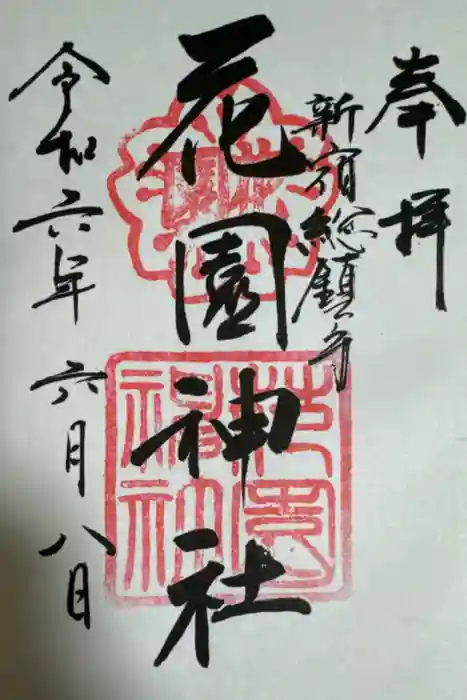 奉拝
新宿総鎮守
花園神社
令和六年六月八日
花園神社